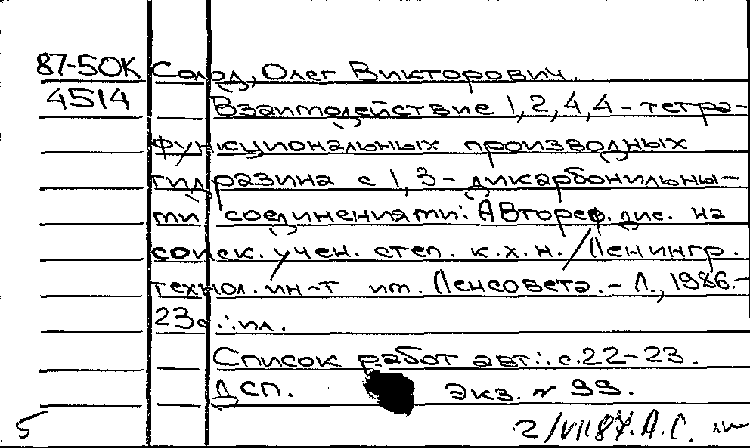 87-50К Солод, Олег Викторович.
4514 Взаимодействие 1,2,4,4-тетра-
функциональных производных
гидразина с 1,3-дикарбонильны-
ми соединениями: Автореф. дис. на
соиск. учен. степ. к.х.н. / Ленингр.
технол. ин-т им. Ленсовета. - Л., 1986.-
23с.: ил.
Список работ авт.: с.22-23.
ДСП. Экз. № 99.
5 2/VII 87. А.С.